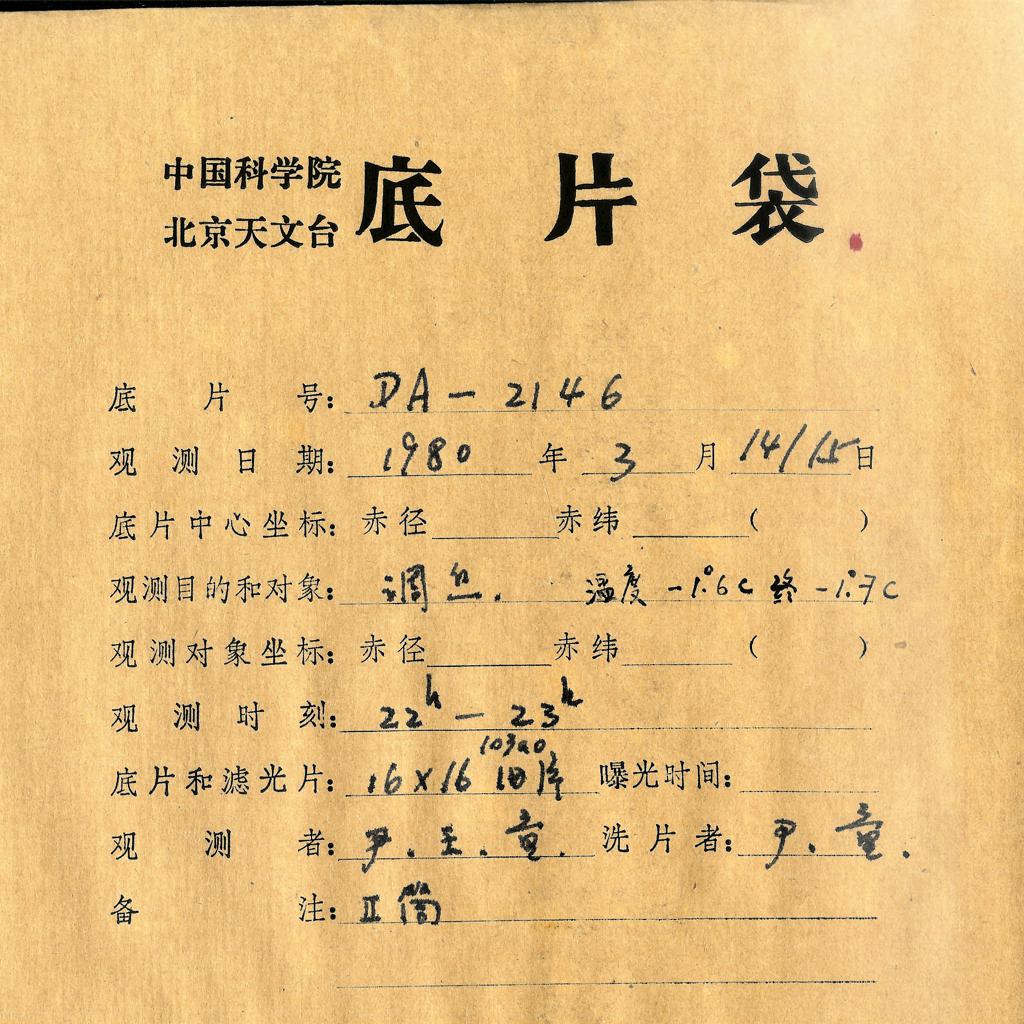 中国科学院
北京天文台
底片袋
底片号: DA-2146
观测日期: 1980年3月14/15日
底片中心坐标: 赤径 赤纬 ( )
观测目的和对象: 调焦. 温度 -1.°6c 终 -1.°7c
观测对象坐标: 赤径 赤纬 ( )
观测时刻: 22h - 23h
103a0
底片和滤光片: 16×16 旧片 曝光时间:
观测者: 尹.王.童. 洗片者: 尹.童.
备注: II筒